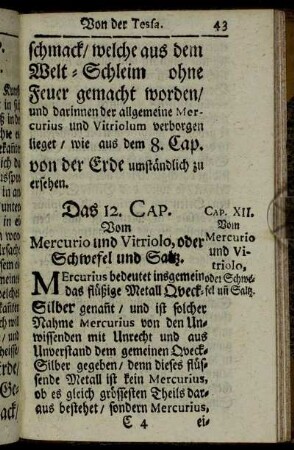 Von der Tessa. 43
schmack/ welche aus dem
Welt-Schleim ohne
Feuer gemacht worden/
und darinnen der allgemeine Mer-
curius und Vitriolum verborgen
lieget/ wie aus dem 8. Cap.
von der Erde umständlich zu
ersehen.
Das 12. CAP.
Vom
Mercurio und Vitriolo, oder
Schwefel und Saltz.
MErcurius bedeutet insgemein
das flüßige Metall Queck-
Silber genañt/ und ist solcher
Nahme Mercurius von den Un-
wissenden mit Unrecht und aus
Unverstand dem gemeinen Queck-
Silber gegeben/ denn dieses flüs-
sende Metall ist kein Mercurius,
ob es gleich grössesten Theils dar-
aus bestehet/ sondern Mercurius,
C 4 ei-
CAP. XII.
Vom
Mercurio
und Vi-
triolo,
oder Schwe-
fel uñ Saltz.